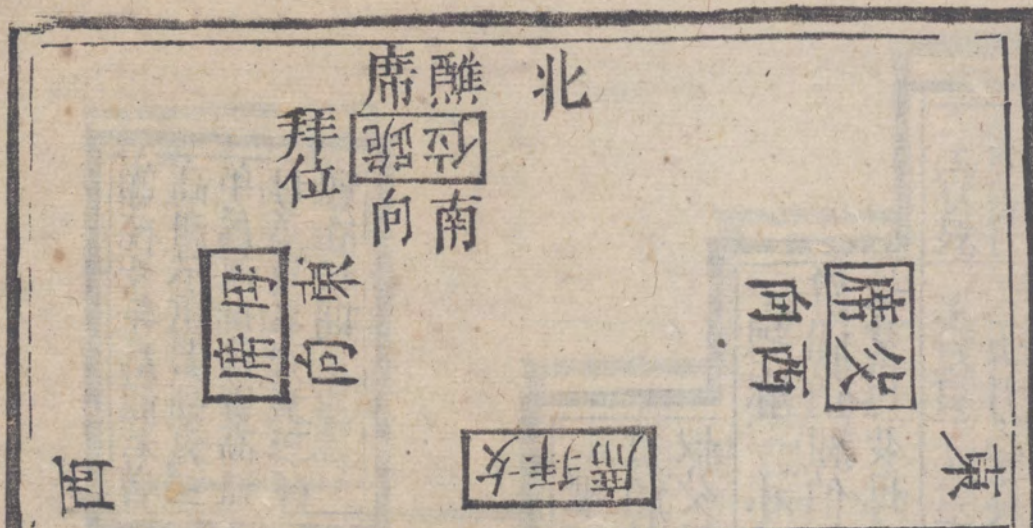 北
醮席
跪位
南向
拜位
父席
西向
母席
東向
女拜席
東
西